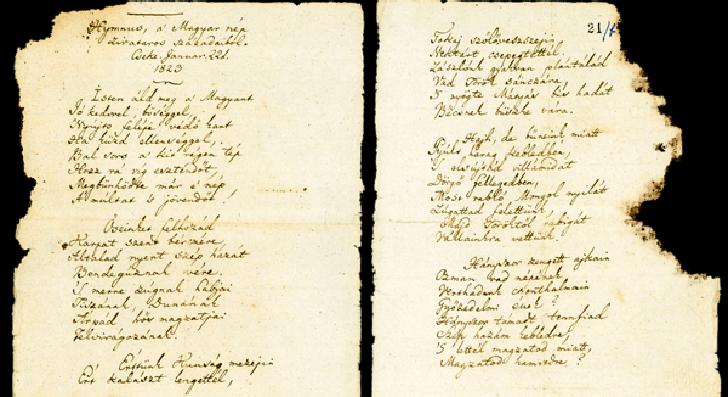 Hymnus, a Magyar nép
zivataros századaiból.
Cseke. Januar. 22d.
1823
Isten áld meg a Magyart
Jó kedvvel, bőséggel,
Nyújts feléje védő kart
Ha küzd ellenséggel,
Bal sors a kit régen tép
Hozz rá víg esztendőt,
Megbűnhődte már e nép
A multat 's jövendőt!
Őseinket felhozád
Kárpát szent bérczére,
Általad nyert szép hazát
Bendegúznak vére.
'S merre zúgnak habjai
Tiszának, Dunának
Árpád hős magzatjai
Felvirágozának.
Értünk Kunság mezején
Ért kalászt lengettél,
21
Tokaj szőlővesszein
Nektárt csepegtettél.
Zászlónk gyakran plántálád
Vad Török sánczára,
'S nyögte Mátyás bús hadát
Bécsnek büszke vára.
Hajh, de bűneink miatt
Gyúlt harag kebledben,
'S elsújtád villámidat
Dörgő fellegedben,
Most rabló Mongol nyilát
Zúgattad felettünk,
Majd Töröktől rabigát
Vállainkra vettünk.
Hányszor zengett ajkain
Ozman vad népének
Vert hadunk csonthalmain
Győzedelmi ének?
Hányszor támadt tenfiad
Szép hazám kebledre,
'S lettél magzatod miatt,
Magzatod hamvvedre?